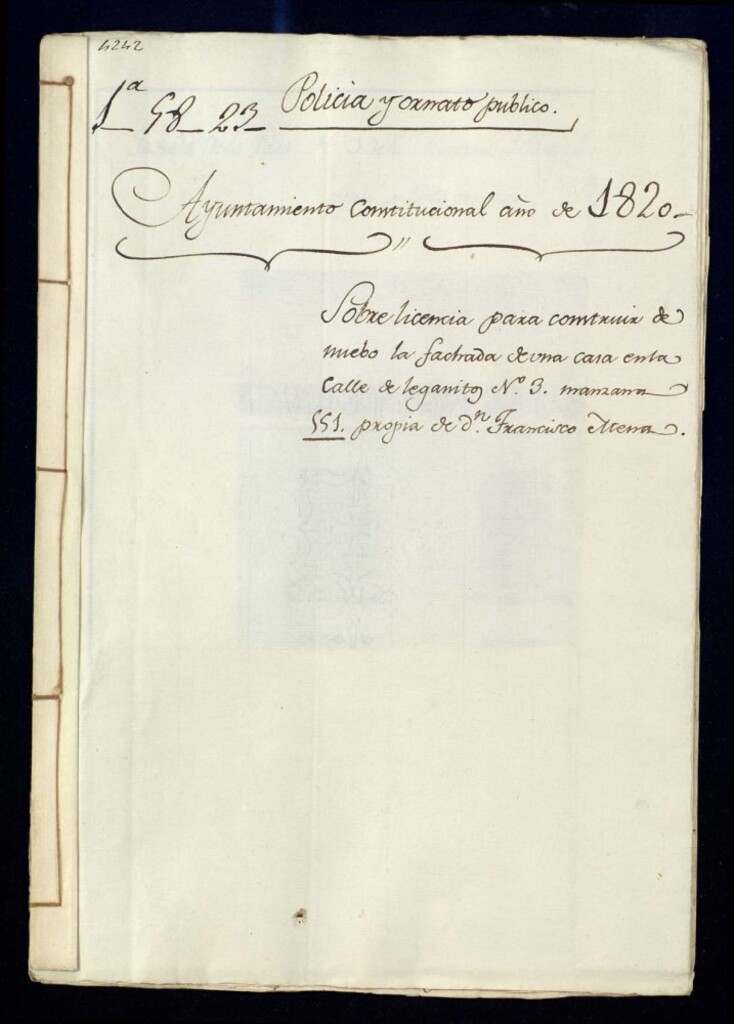 4242
1ª 58 23 Policia y ornato publico.
Ayuntamiento Constitucional año de 1820
Sobre licencia para construir de
nuebo la fachada de una casa en la
Calle de leganitos Nº 3. manzana
551. propia de dn. Francisco